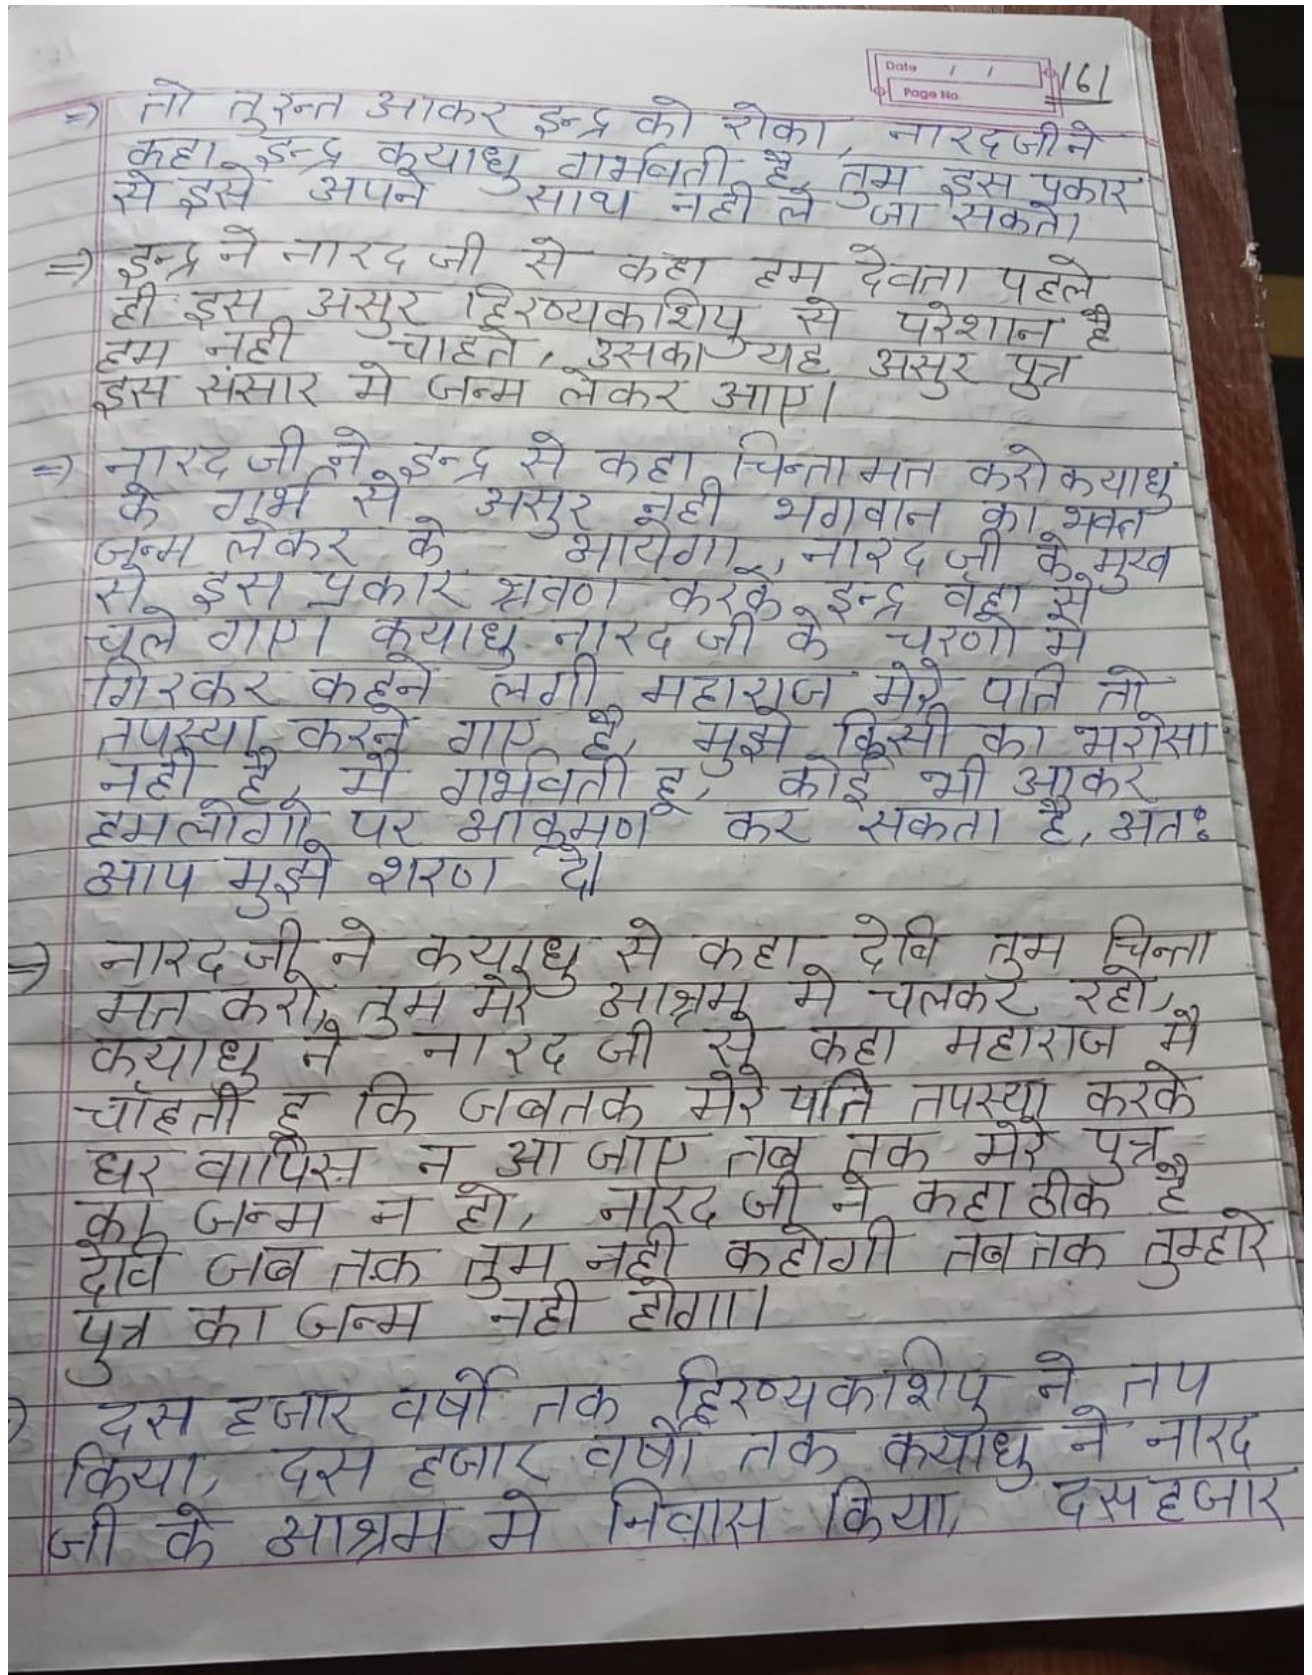 Date / /
Page No.
161
=) तो तुरन्त आकर इन्द्र को रोका, नारदजीने
कहा इन्द्र कयाधु गर्भवती है, तुम इस प्रकार
से इसे अपने साथ नही ले जा सकते।
=) इन्द्र ने नारद जी से कहा हम देवता पहले
ही इस असुर हिरण्यकशिपु से परेशान है
हम नही चाहते, उसका यह असुर पुत्र
इस संसार मे जन्म लेकर आए।
=) नारद जी ने इन्द्र से कहा चिन्ता मत करो कयाधु
के गर्भ से असुर नही भगवान का भक्त
जन्म लेकर के आयेगा, नारद जी के मुख
से इस प्रकार श्रवण करके इन्द्र वहा से
चले गाए। कयाधु नारद जी के चरणो मे
गिरकर कहने लगी महाराज मेरे पति तो
तपस्या करने गाए है, मुझे किसी का भरोसा
नही है, मै गर्भवती हू, कोई भी आकर
हमलोगो पर आक्रमण कर सकता है, अतः
आप मुझे शरण दे।
=) नारद जी ने कयाधु से कहा देवि तुम चिन्ता
मत करो, तुम मेरे आश्रम मे चलकर रहो,
कयाधु ने नारद जी से कहा महाराज मै
चाहती हू कि जबतक मेरे पति तपस्या करके
घर वापिस न आ जाए तब तक मेरे पुत्र
का जन्म न हो, नारद जी ने कहा ठीक है
देवि जब तक तुम नही कहोगी तब तक तुम्हारे
पुत्र का जन्म नही होगा।
=) दस हजार वर्षो तक हिरण्यकशिपु ने तप
किया, दस हजार वर्षो तक कयाधु ने नारद
जी के आश्रम मे निवास किया, दस हजार